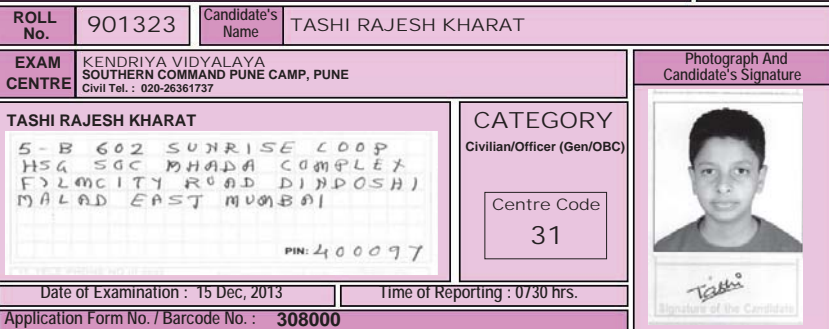 ROLL No. 901323 Candidate's Name TASHI RAJESH KHARAT
EXAM CENTRE KENDRIYA VIDYALAYA
SOUTHERN COMMAND PUNE CAMP, PUNE
Civil Tel. : 020-26361737
Photograph And
Candidate's Signature
TASHI RAJESH KHARAT
5-B 602 SUNRISE COOP
HSG SOC MHADA COMPLEX
FILMCITY ROAD DINDOSHI
MALAD EAST MUMBAI
PIN: 400097
CATEGORY
Civilian/Officer (Gen/OBC)
Centre Code
31
Tashi
Signature of the Candidate
Date of Examination : 15 Dec, 2013 Time of Reporting : 0730 hrs.
Application Form No. / Barcode No. : 308000